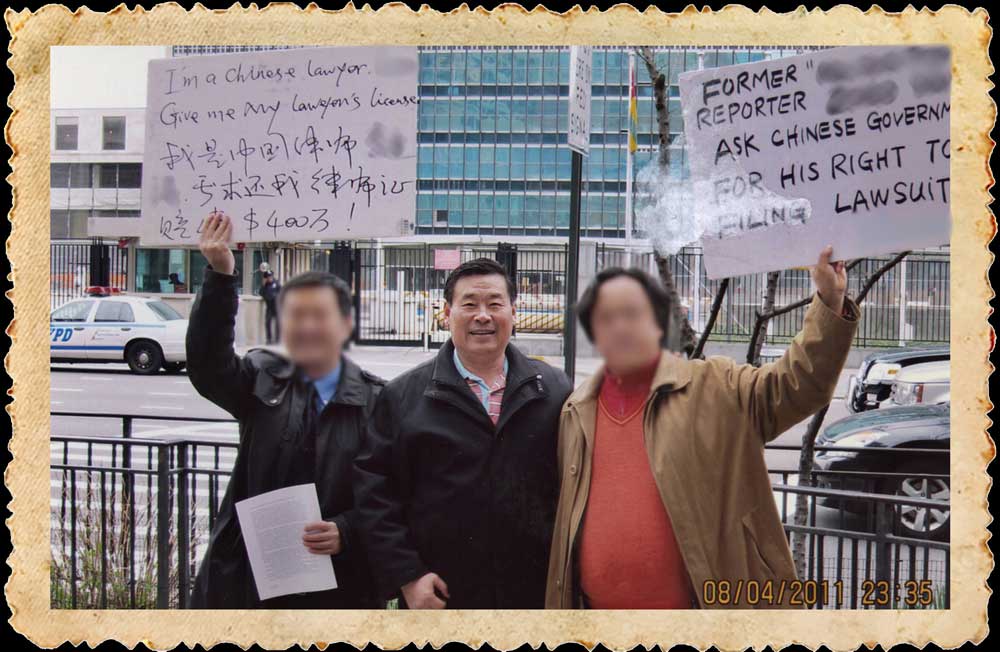 I'm a Chinese lawyor.
Give me my lawyor's license
我是中国律师
要求还我律师证
赔偿 $400万!
FORMER "
REPORTER
ASK CHINESE GOVERNM
FOR HIS RIGHT TO
FILING LAWSUIT
YPD
08/04/2011 23:35